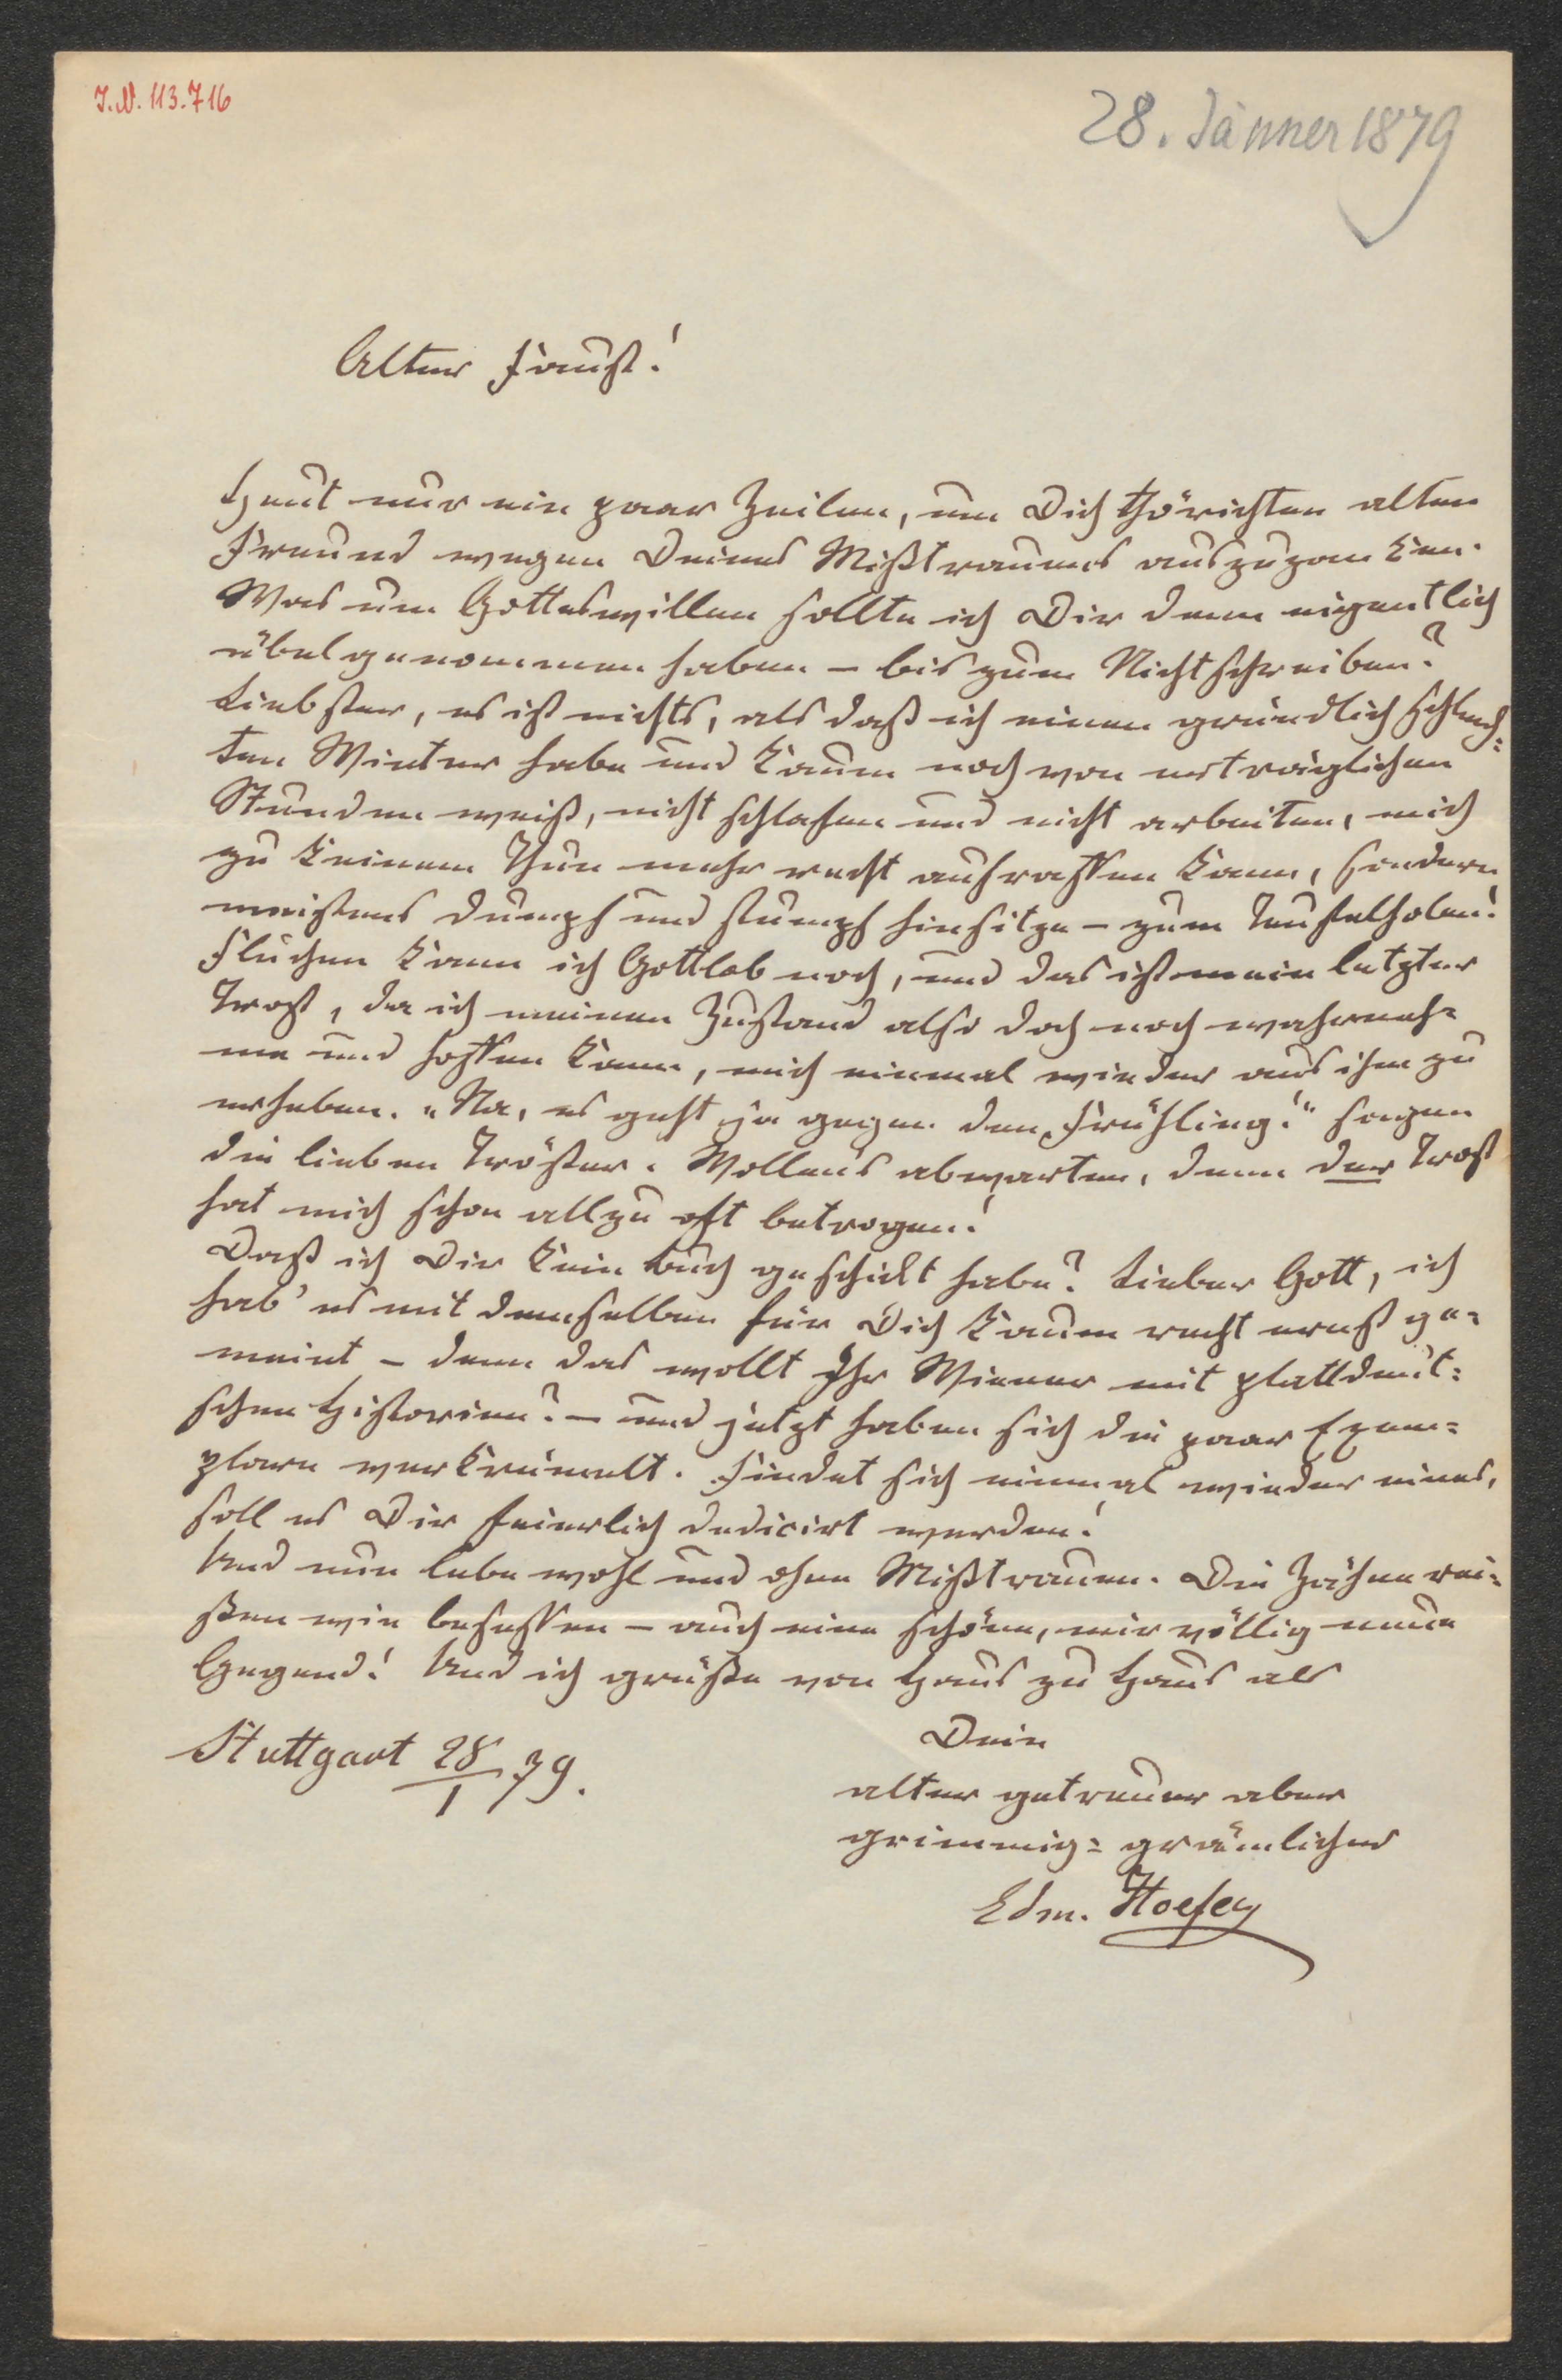 I.N. 113.716
28. Jänner 1879
Alter Faust!
Heut nur ein paar Zeilen, um Dich thörichten alten
Freund wegen Deines Mißtrauens auszuzanken.
Was um Gotteswillen sollte ich Dir denn eigentlich
übelgenommen haben – bis zum Nichtschreiben?
Liebster, es ist nichts, als daß ich einen gründlich schlech=
ten Winter habe und kaum noch von erträglichen
Stunden weiß, nicht schlafen und nicht arbeiten, mich
zu keinem Thun mehr recht aufraffen kann, sondern
meistens dumpf und stumpf hinsitze – zum Teufelholen!
Fluchen kann ich Gottlob noch, und das ist mein letzter
Trost, da ich meinen Zustand also doch noch wahrneh=
me und hoffen kann, mich einmal wieder aus ihm zu
erheben. „Na, es geht ja gegen den Frühling!" sagen
die lieben Tröster. Wollen's abwarten, denn der Trost
hat mich schon allzu oft betrogen!
Daß ich Dir kein Buch geschickt habe? Lieber Gott, ich
hab' es mit demselben für Dich kaum recht ernst ge=
meint – denn das wollt Ihr Wiener mit plattdeut=
schen Historien? – und jetzt haben sich die paar Exem=
plare verkrümelt. Findet sich einmal wieder eines,
soll es Dir feierlich dedicirt werden!
Und nun lebe wohl und ohne Mißtrauen. Die Zähne rei=
ßen wie besessen – auch eine schöne, mir völlig neue
Gegend! Und ich grüße von Haus zu Haus als
Dein
Stuttgart 28/1 79.
alter getreuer aber
grimmig=grämlicher
Edm. Hoefer